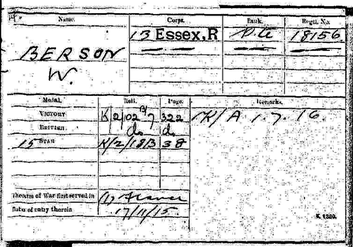 Name. Corps. Rank. Regtl. No.
BERSON 13 Essex.R Pte 18156
W.
Medal. Roll. Page. Remarks.
VICTORY K/2/102 B7 322 K/A 1.7.16.
BRITISH do. do.
15 STAR K/2/18/3 38
Theatre of War first served in (1) France
Date of entry therein 17/11/15.
K. 1380.